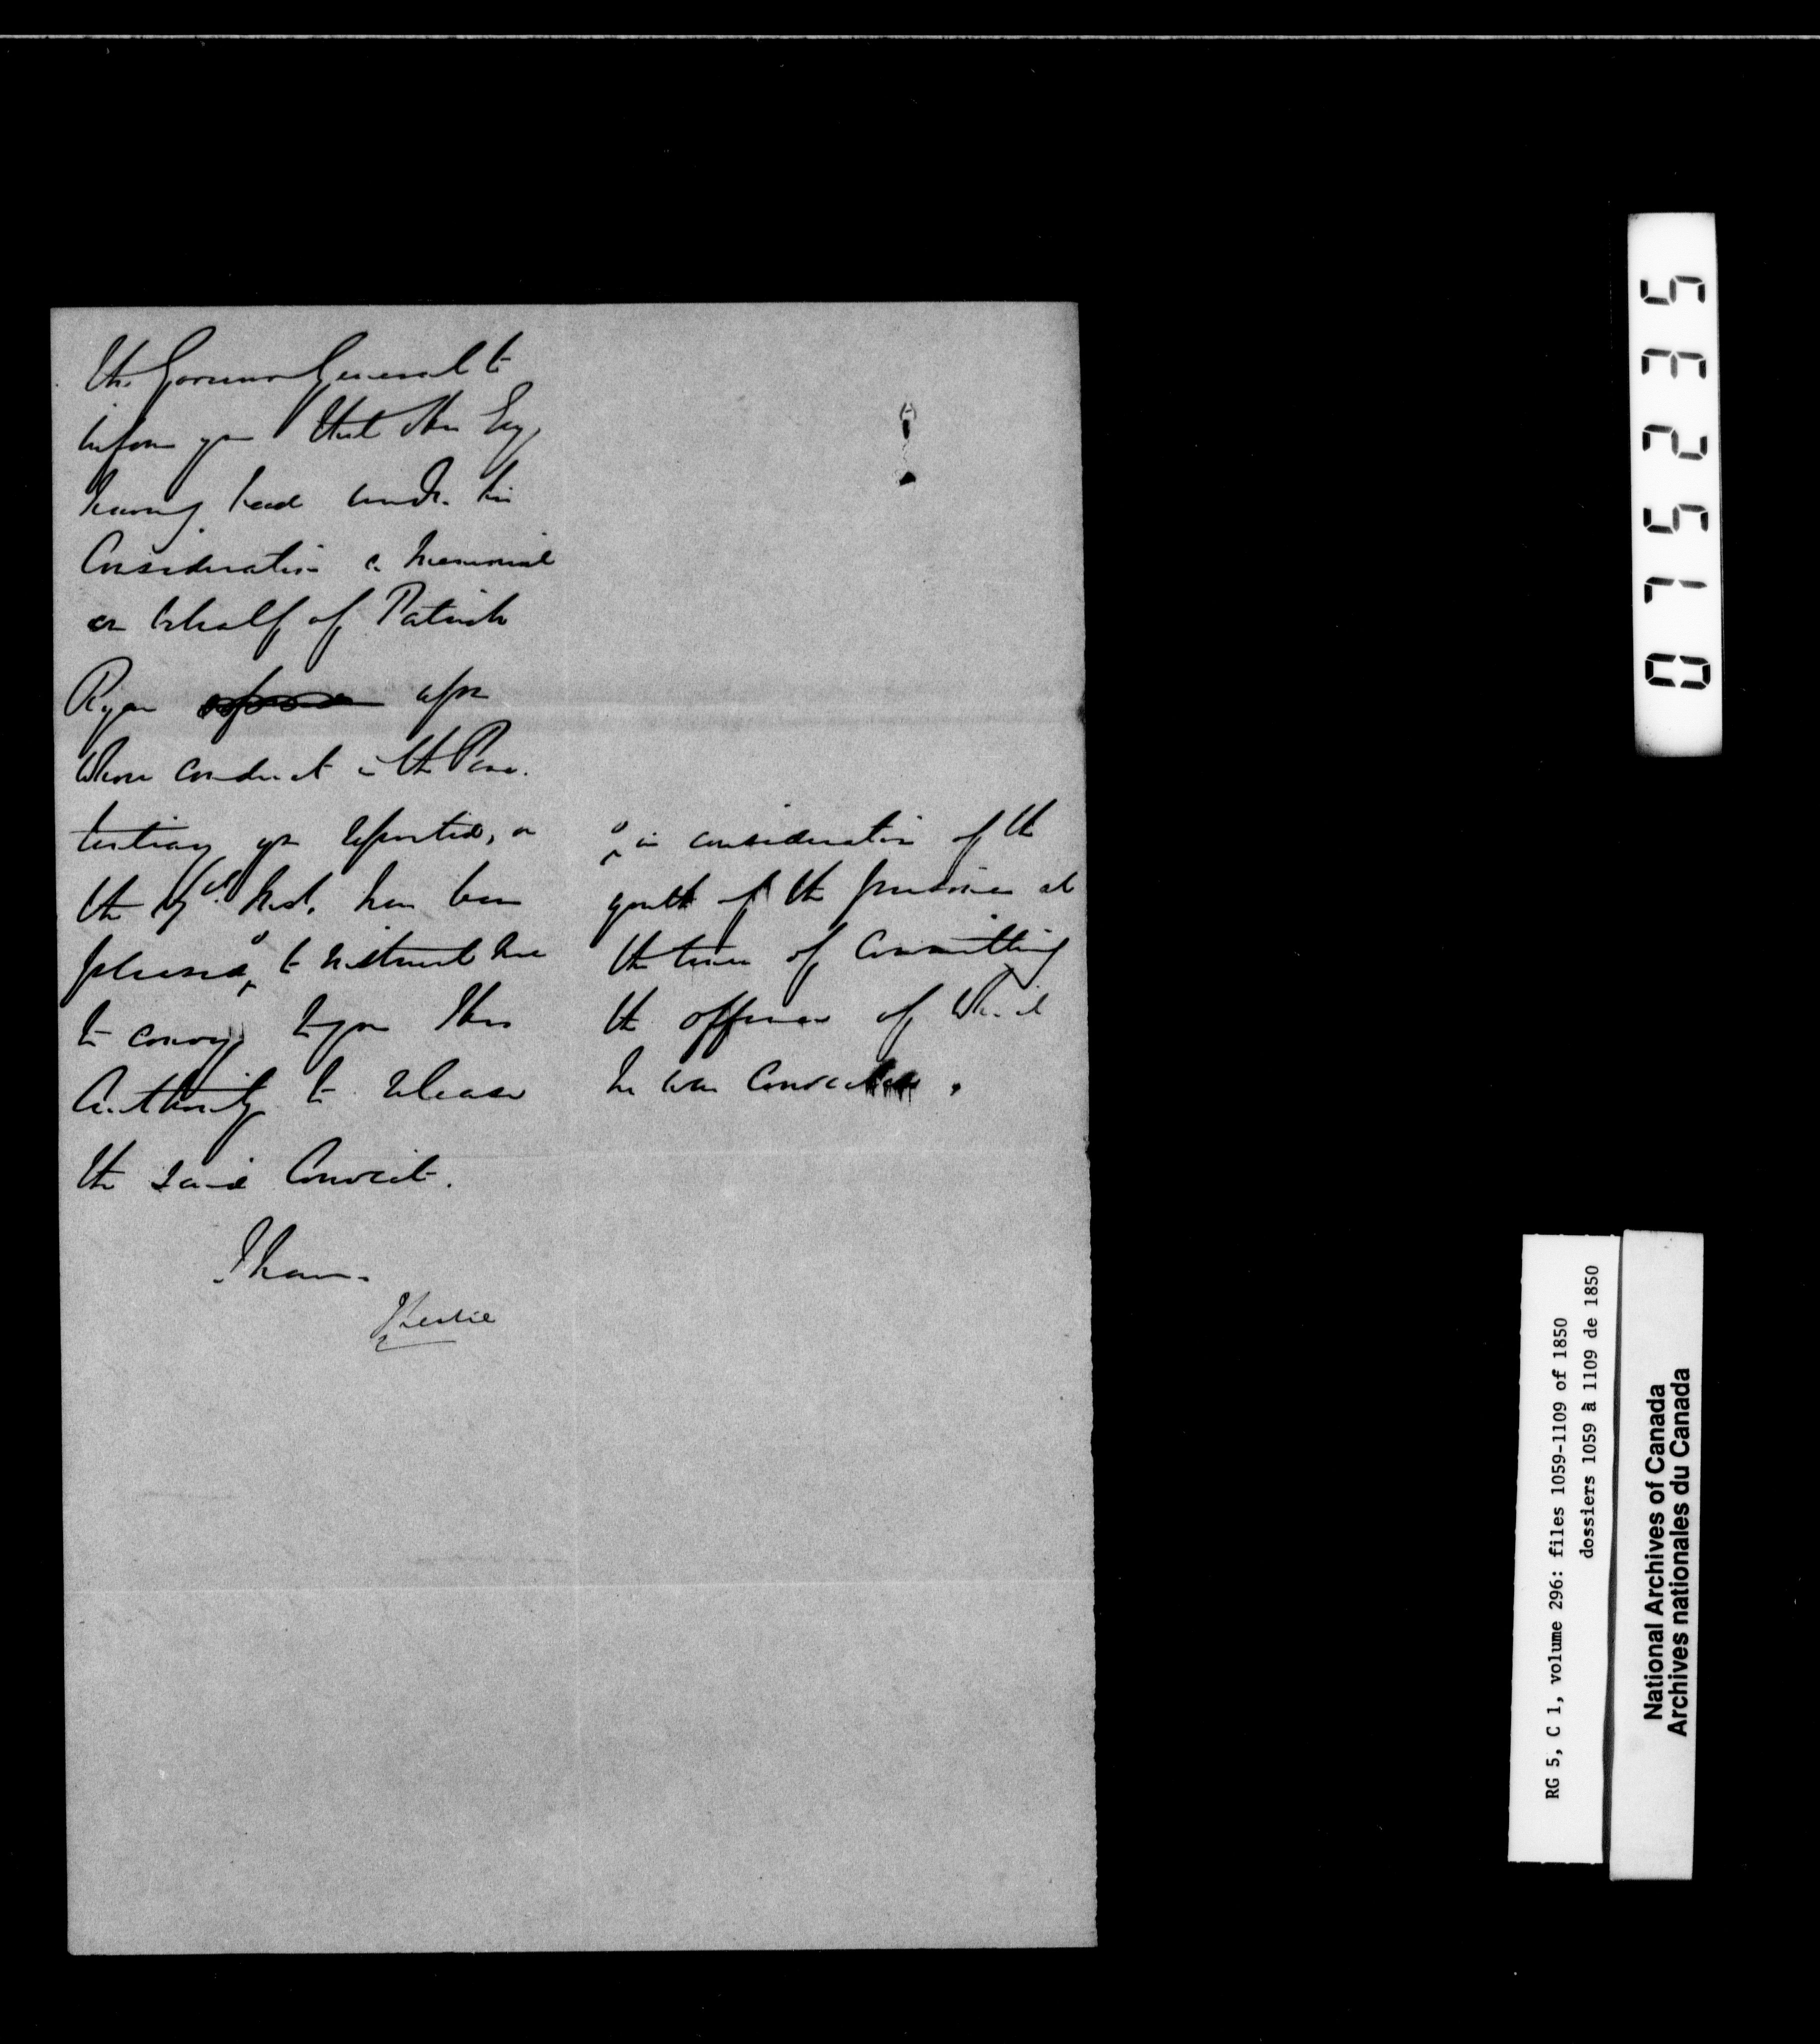 the Governor General to
inform you that His Exy
having had under his
Consideration a Memorial
on behalf of Patrick
Ryan upon
whose conduct in the Peni-
tentiary you reported, on
the inst. has been
pleased, to instruct me
to convey to you His
Authority to release
the said Convict.
I have.
JLeslie
in consideration of the
youth of the prisoner at
the time of committing
the offence of which
he was Convicted.
015235
RG 5, C 1, volume 296: files 1059-1109 of 1850
dossiers 1059 à 1109 de 1850
National Archives of Canada
Archives nationales du Canada